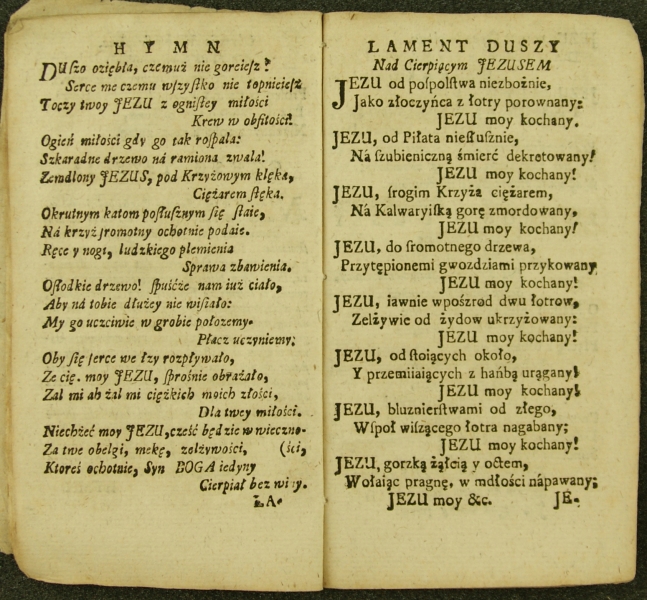 HYMN
DUſzo oziębła, czemuż nie goreieſz?
Serce me czemu wſzyſtko nie topnieieſz
Toczy twoy JEZU z ogniſtey miłości
Krew w obfitości!
Ogień miłości gdy go tak roſpala:
Szkaradne drzewo ná ramiona zwala!
Zemdlony JEZUS, pod Krzyżowym klęka,
Ciężarem ſtęka.
Okrutnym katom poſłuſznym ſię ſtaie,
Ná krzyż ſromotny ochotnie podaie.
Ręce y nogi, ludzkiego plemienia
Sprawa zbawienia.
Oſłodkie drzewo! ſpuśćże nam iuż ciało,
Aby ná tobie dłużey nie wiſiało:
My go uczciwie w grobie położemy.
Płacz uczyniemy;
Oby ſię ſerce we łzy rozpływało,
Że cię. moy JEZU, ſprośnie obrażało,
Zal mi ah żal mi ciężkich moich złości,
Dla twey miłości.
Niechżeć moy JEZU, cześć będzie w wieczno-
Za twe obelgi, mękę, zelżywości, (ści,
Ktoreś ochotnie, Syn BOGA iedyny
Cierpiał bez winy.
LA-
LAMENT DUSZY
Nad Cierpiącym JEZUSEM
JEZU od poſpolſtwa niezbożnie,
Jako złoczyńca z łotry porownany:
JEZU moy kochany.
JEZU, od Piłata niesłuſznie,
Na ſzubieniczną śmierć dekretowany!
JEZU moy kochany!
JEZU, ſrogim Krzyża ciężarem,
Ná Kalwaryiſką gorę zmordowany,
JEZU moy kochany!
JEZU, do ſromotnego drzewa,
Przytępionemi gwozdziami przykowany
JEZU moy kochany!
JEZU, iawnie wpośrzod dwu łotrow,
Zelżywie od żydow ukrzyżowany:
JEZU moy kochany!
JEZU, od ſtoiących około,
Y przemiiaiących z hańbą urągany!
JEZU moy kochany!
JEZU, bluznierſtwami od złego,
Wſpoł wiſzącego łotra nagabany;
JEZU moy kochany!
JEZU, gorzką żąłcią y octem,
Wołaiąc pragnę, w mdłości nápawany;
JEZU moy &c.
JE-